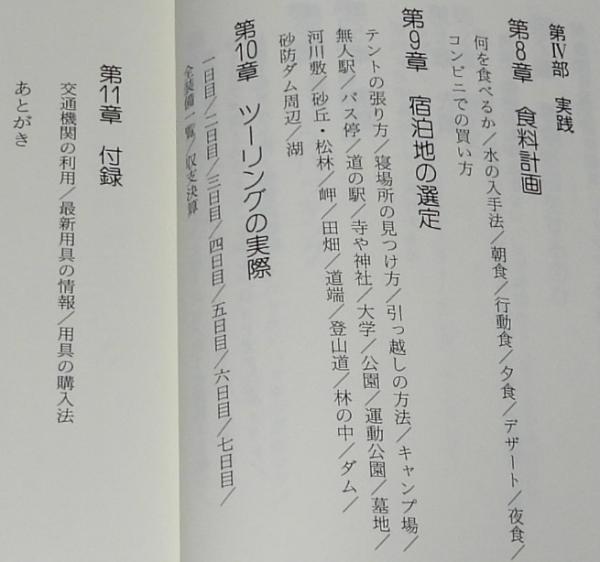 第Ⅳ部 実践
第8章 食料計画
何を食べるか/水の入手法/朝食/行動食/夕食/デザート/夜食/
コンビニでの買い方
第9章 宿泊地の選定
テントの張り方/寝場所の見つけ方/引っ越しの方法/キャンプ場/
無人駅/バス停/道の駅/寺や神社/大学/公園/運動公園/墓地/
河川敷/砂丘・松林/岬/田畑/道端/登山道/林の中/ダム/
砂防ダム周辺/湖
第10章 ツーリングの実際
一日目/二日目/三日目/四日目/五日目/六日目/七日目/
全装備一覧/収支決算
第11章 付録
交通機関の利用/最新用具の情報/用具の購入法
あとがき